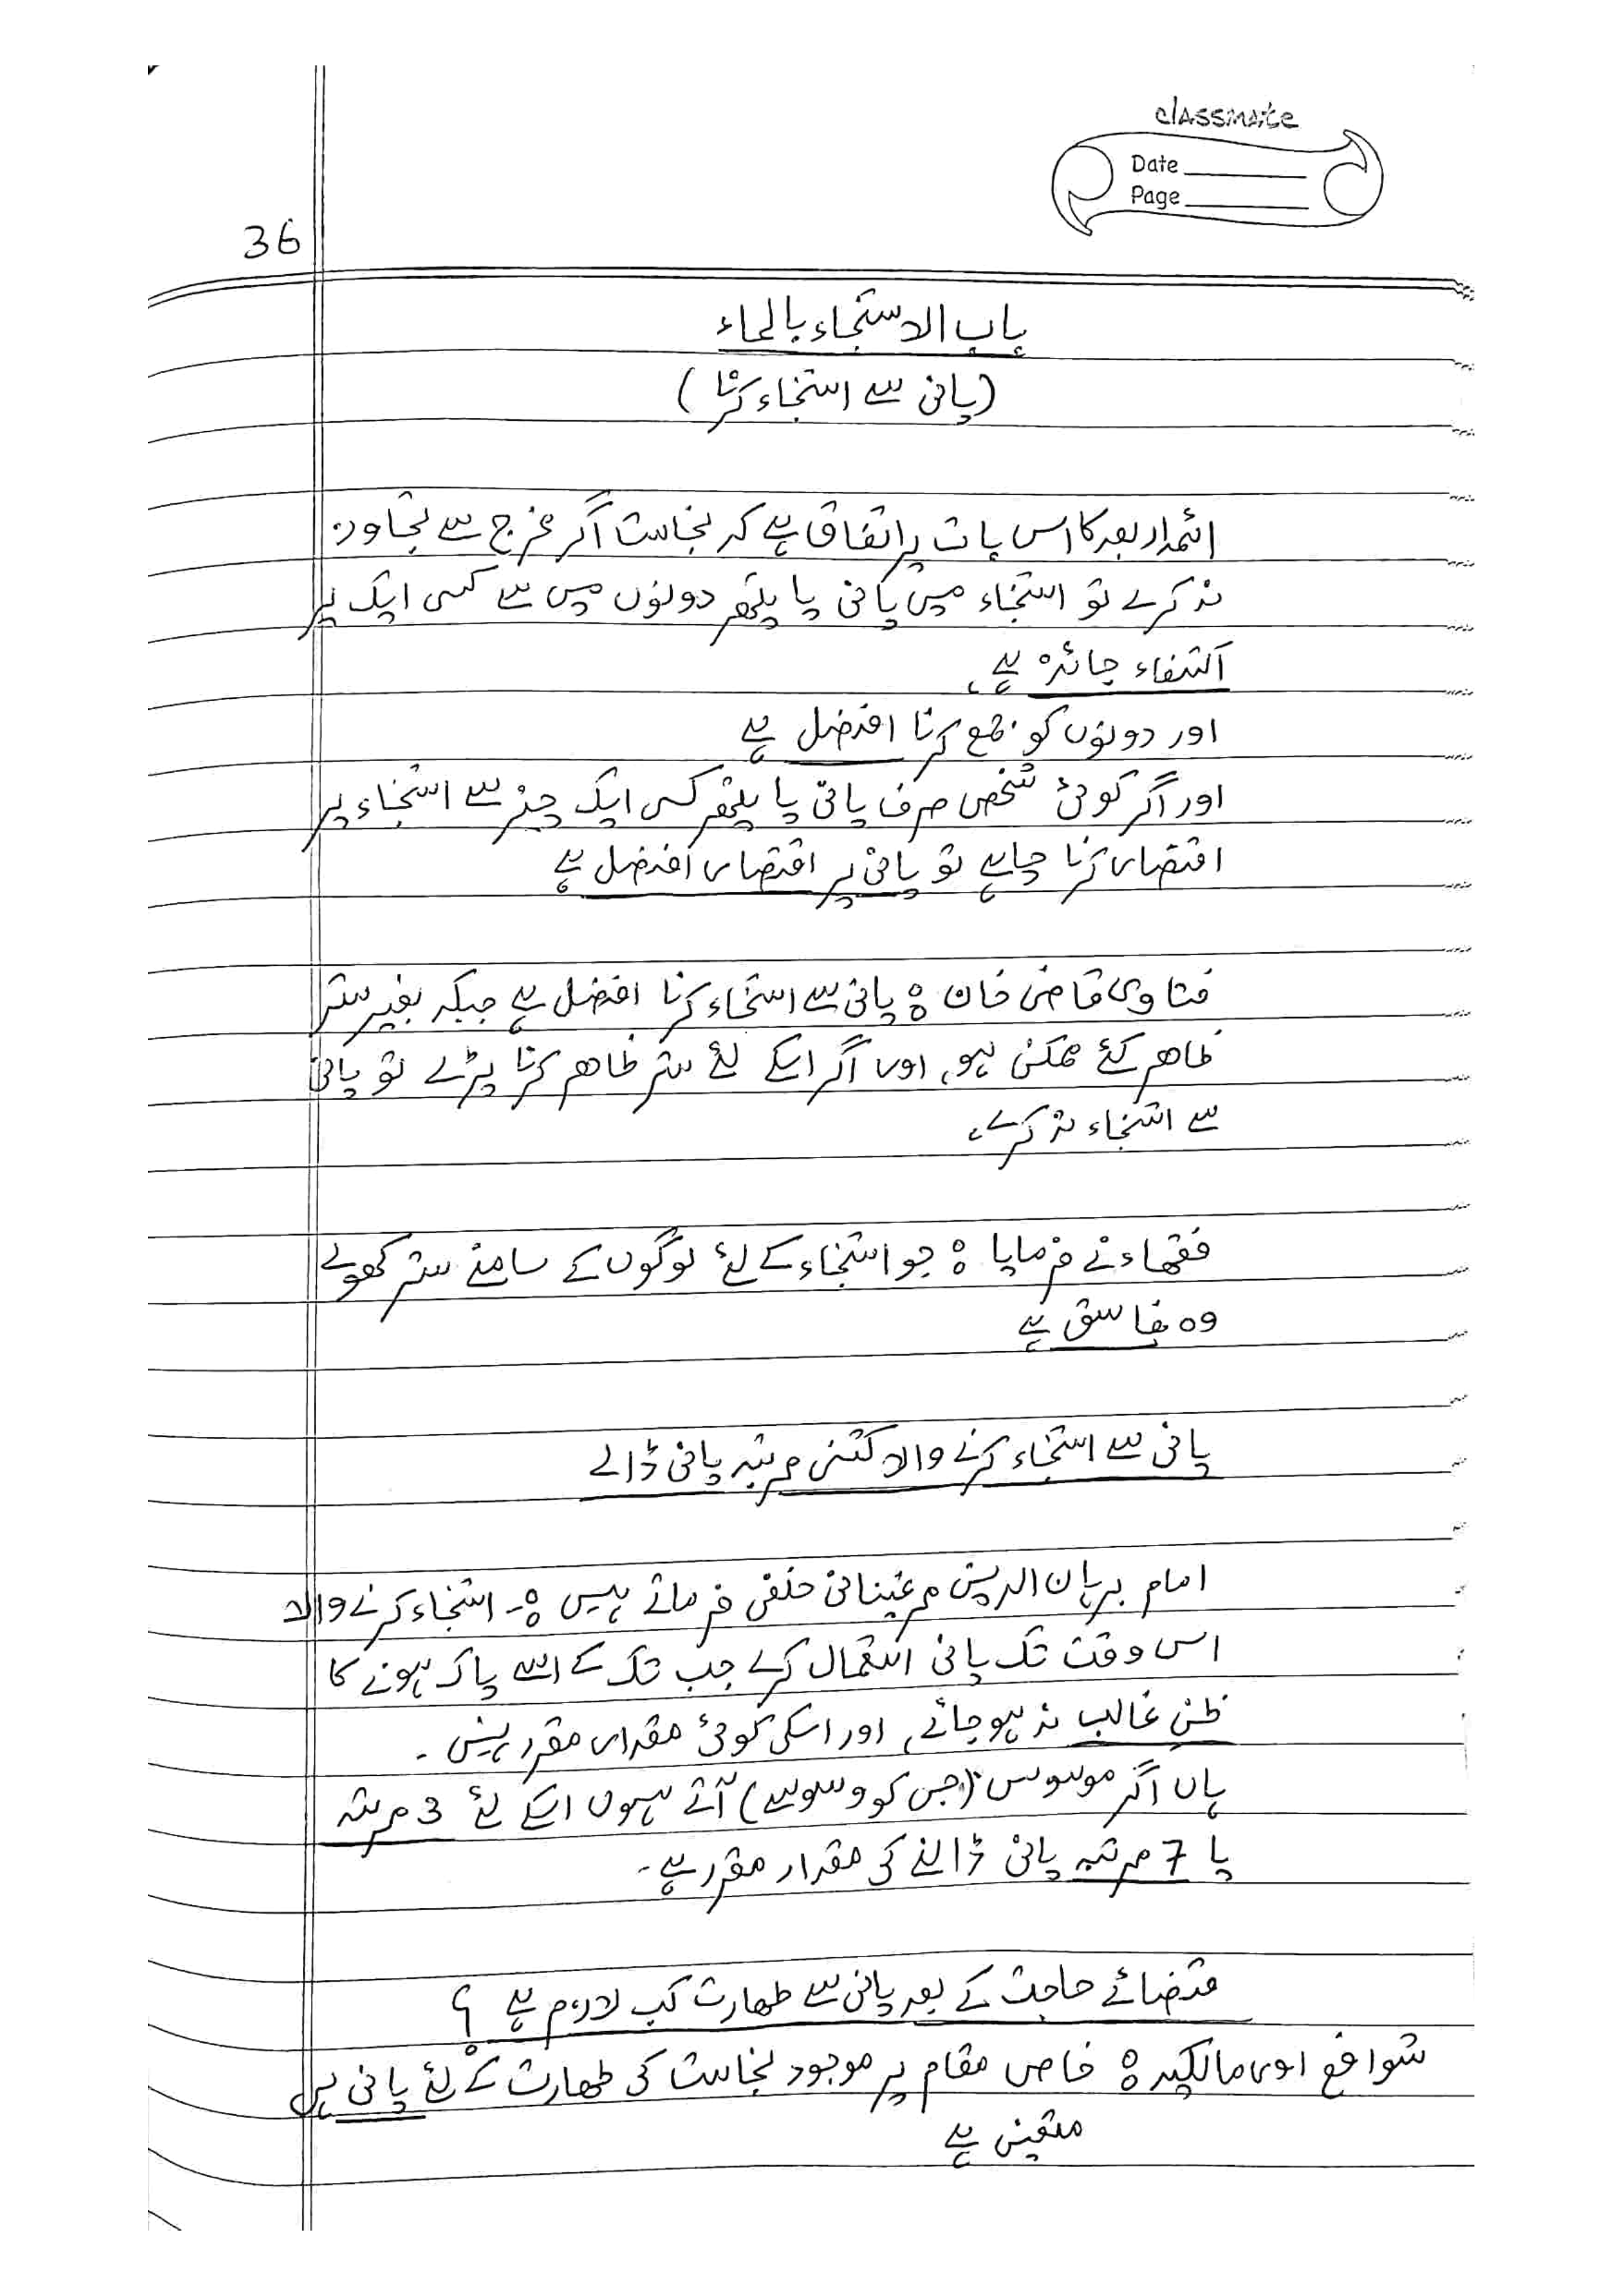 classmate
Date
Page
36
باب الاستنجاء بالماء
(پانی سے استنجاء کرنا)
ائمہ اربعہ کا اس بات پر اتفاق ہے کہ نجاست اگر مخرج سے تجاوز
نہ کرے تو استنجاء میں پانی یا پتھر دونوں میں سے کسی ایک پر
اکتفاء جائزہ ہے،
اور دونوں کو جمع کرنا افضل ہے
اور اگر کوئی شخص صرف پانی یا پتھر کسی ایک چیز سے استنجاء پر
اقتصار کرنا چاہے تو پانی پر اقتصار افضل ہے
فتاوی قاضی خان : پانی سے استنجاء کرنا افضل ہے جبکہ بغیر ستر
ظاھر کئے ممکن ہو، اور اگر اسکے لئے ستر ظاھر کرنا پڑے تو پانی
سے استنجاء نہ کرے،
فقھاء نے فرمایا : جو استنجاء کے لئے لوگوں کے سامنے ستر کھولے
وہ فاسق ہے
پانی سے استنجاء کرنے والا کتنی مرتبہ پانی ڈالے
امام برہان الدین مرغینانی حنفی فرماتے ہیں :- استنجاء کرنے والا
اس وقت تک پانی استعمال کرے جب تک کے اسے پاک ہونے کا
ظن غالب نہ ہو جائے، اور اسکی کوئی مقدار مقرر نہیں ۔
ہاں اگر موسوس (جس کو وسوسے) آتے ہوں اسکے لئے 3 مرتبہ
یا 7 مرتبہ پانی ڈالنے کی مقدار مقرر ہے۔
قضائے حاجت کے بعد پانی سے طھارت کب لازم ہے ؟
شوافع اور مالکیہ : خاص مقام پر موجود نجاست کی طھارت کے لئے پانی ہی
متعین ہے